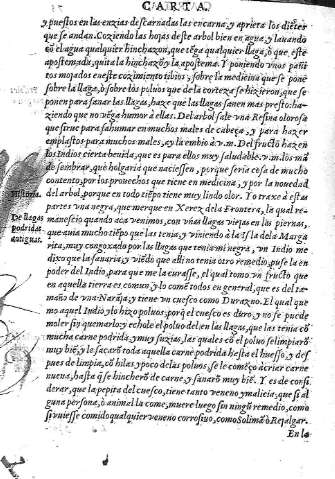 CARTA
y puestos en las enzias descarnadas las encarna: y aprieta los dietes
que se andan. Coziendo las hojas deste arbol bien en agua, y lauando
cō el agua qualquier hinchazon, que tēga qualquier llaga, ò que estè
apostemada, quita la hinchazō y la apostema. Y poniendo vnos pañi-
tos mojados en este cozimiento tibios, sobre la medicina que se pone
sobre la llaga, ò sobre los poluos que de la corteza se hizieron, que se
ponen para sanar las llagas, haze que las llagas sanen mas presto: ha-
ziendo que no vēga humor à ellas. Del arbol sale vna Resina olorosa
que sirue para sahumar en muchos males de cabeça, y para hazer
emplastos para muchos males, ay la embio à v.m. Del fructo hazen
los Indios cierta beuida, que es para ellos muy saludable. v.m. los mā
de sembrar, que holgaria que naciessen, porque seria cosa de mucho
contento, por los prouechos que tiene en medicina, y por la nouedad
del arbol, porque en todo tiēpo tiene muy lindo olor. Yo traxe à estas
partes vna negra, que merque en Xerez dela Frontera, la qual re-
manescio quando aca venimos, con vñas llagas viejas en las piernas,
que auia mucho tiēpo que las tenia, y viniendo à la Isla dela Marga
rita, muy congoxado por las llagas que tenia mi negra, vn Indio me
dixo que la sanaria, y viēdo que alli no tenia otro remedio, puse la en
poder del Indio, para que me la curasse, el qual tomo vn fructo que
en aquella tierra es comun, y lo comē todos en general, que es del ta-
maño de vna Narāja, y tiene vn cuesco como Durazno. El qual que
mo aquel Indio y lo hizo poluos: porq̃ el cuesco es duro, y no se puede
moler sin quemarlo, y echole el poluo del en las llagas, que las tenia cō
mucha carne podrida, y muy suzias, las quales cō el poluo se limpiarō
muy biē, y le sacarō toda aquella carne podrida hasta el huesso, y des
pues de limpia, cō hilas y poco delas poluos, se le comēço à criar carne
nueua, hasta q̃ se hincherō de carne, y sanarō muy biē. Y es de consi
derar, que la pepita del cuesco, tiene tanto veneno y malicia, que si al
guna persona, ò animal la come, muere luego sin ningū remedio, como
si vuiesse comido qualquier veneno corrosiuo, como Solimā ò Rejalgar.
En la
Historia.
De llagas
podridas
antiguas.